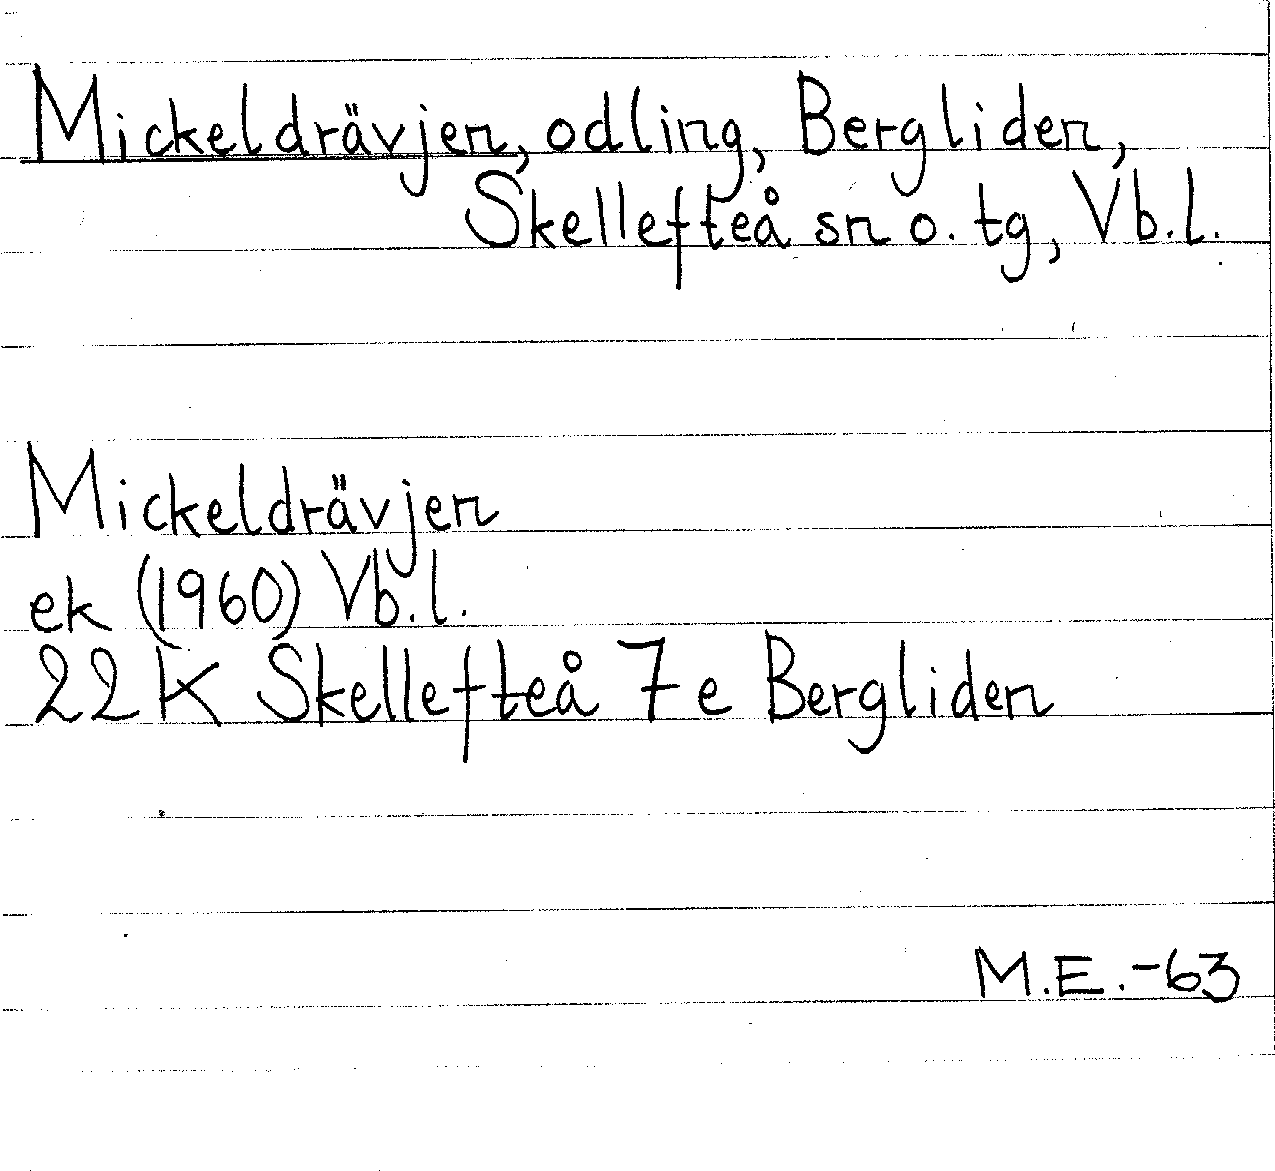 Mickeldrävjen, odling, Bergliden,
Skellefteå sn o. tg, Vb.l.
Mickeldrävjen
ek (1960) Vb.l.
22K Skellefteå 7e Bergliden
M.E.-63